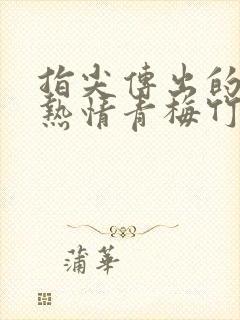 指尖傳出的
熱情青梅竹
蒲華